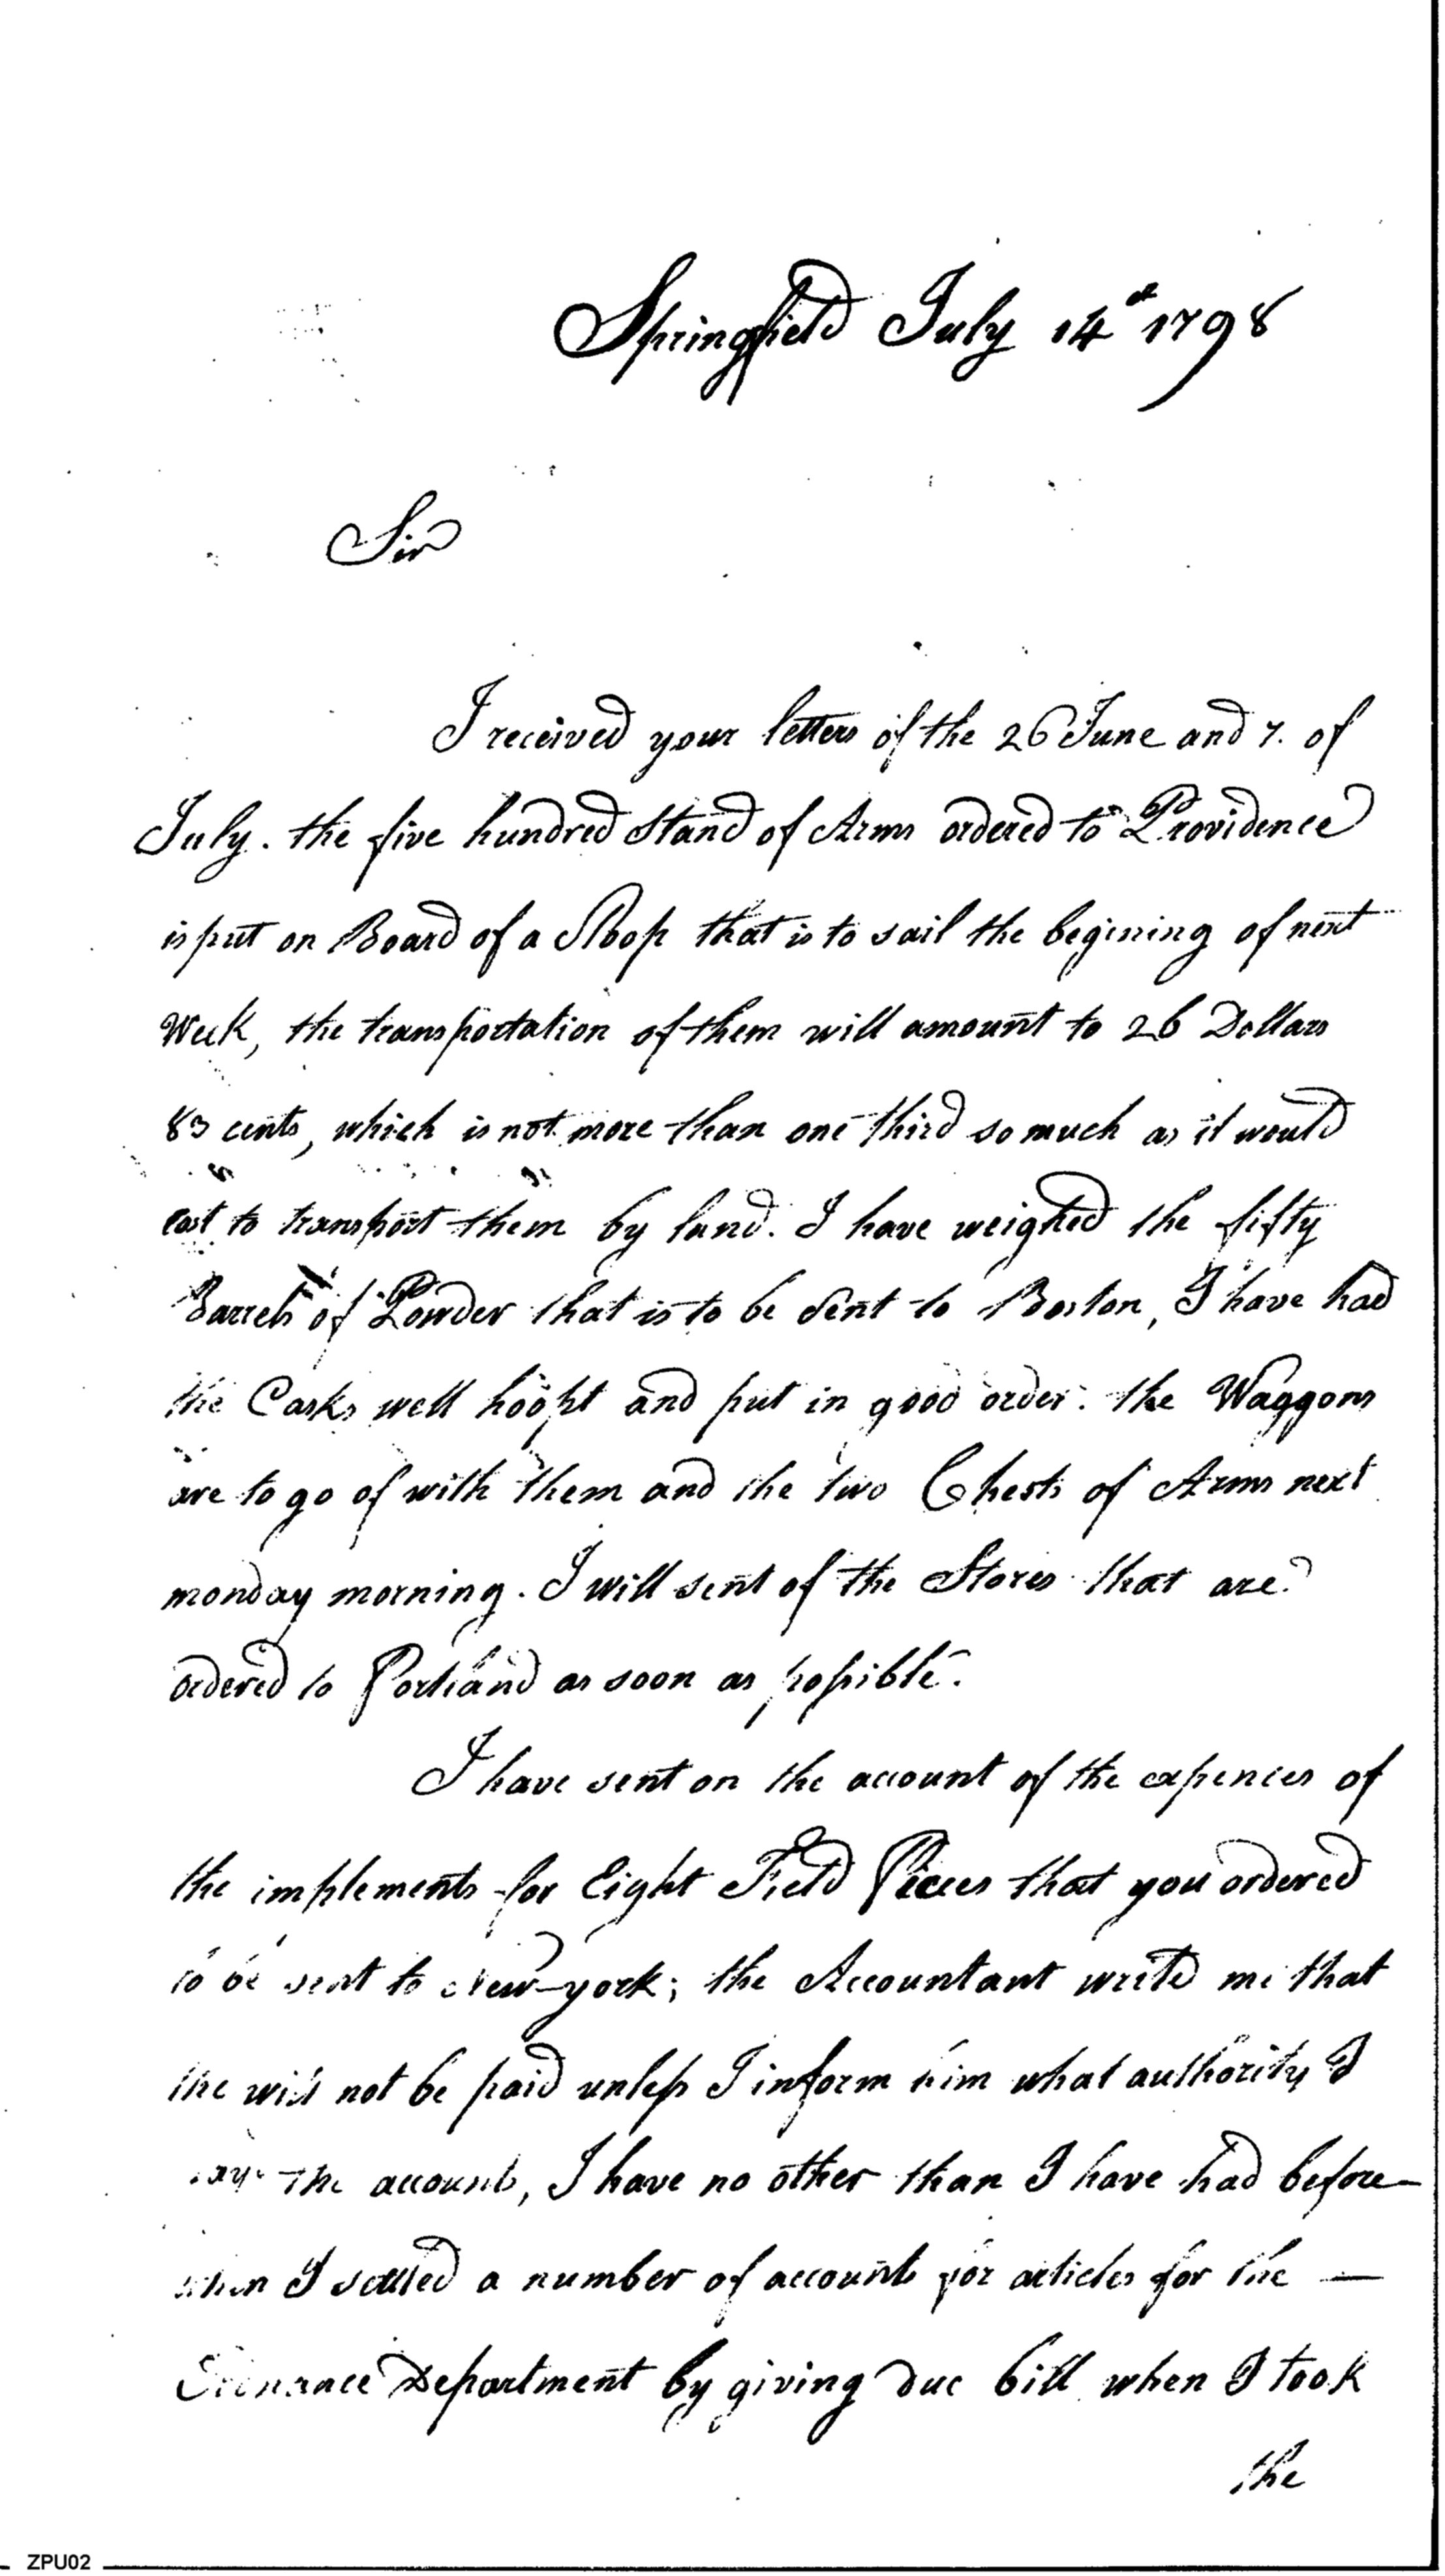 Springfield July 14th 1798
Sir
I received your letters of the 26 June and 7. of
July. the five hundred Stand of Arms ordered to Providence
is put on Board of a Sloop that is to sail the begining of next
Week, the transportation of them will amount to 26 Dollars
83 cents, which is not more than one third so much as it would
cost to transport them by land. I have weighed the fifty
Barrels of Powder that is to be sent to Boston, I have had
the Casks well hoopt and put in good order. the Waggons
are to go of with them and the two Chests of Arms next
monday morning. I will sent of the Stores that are
ordered to Portland as soon as possible.
I have sent on the account of the expences of
the implements for Eight Field Pieces that you ordered
to be sent to New-york; the Accountant write me that
the will not be paid unless I inform him what authority I
the accounts, I have no other than I have had before
when I settled a number of accounts for articles for the —
Ordnance Department by giving due bill when I took
the
ZPU02